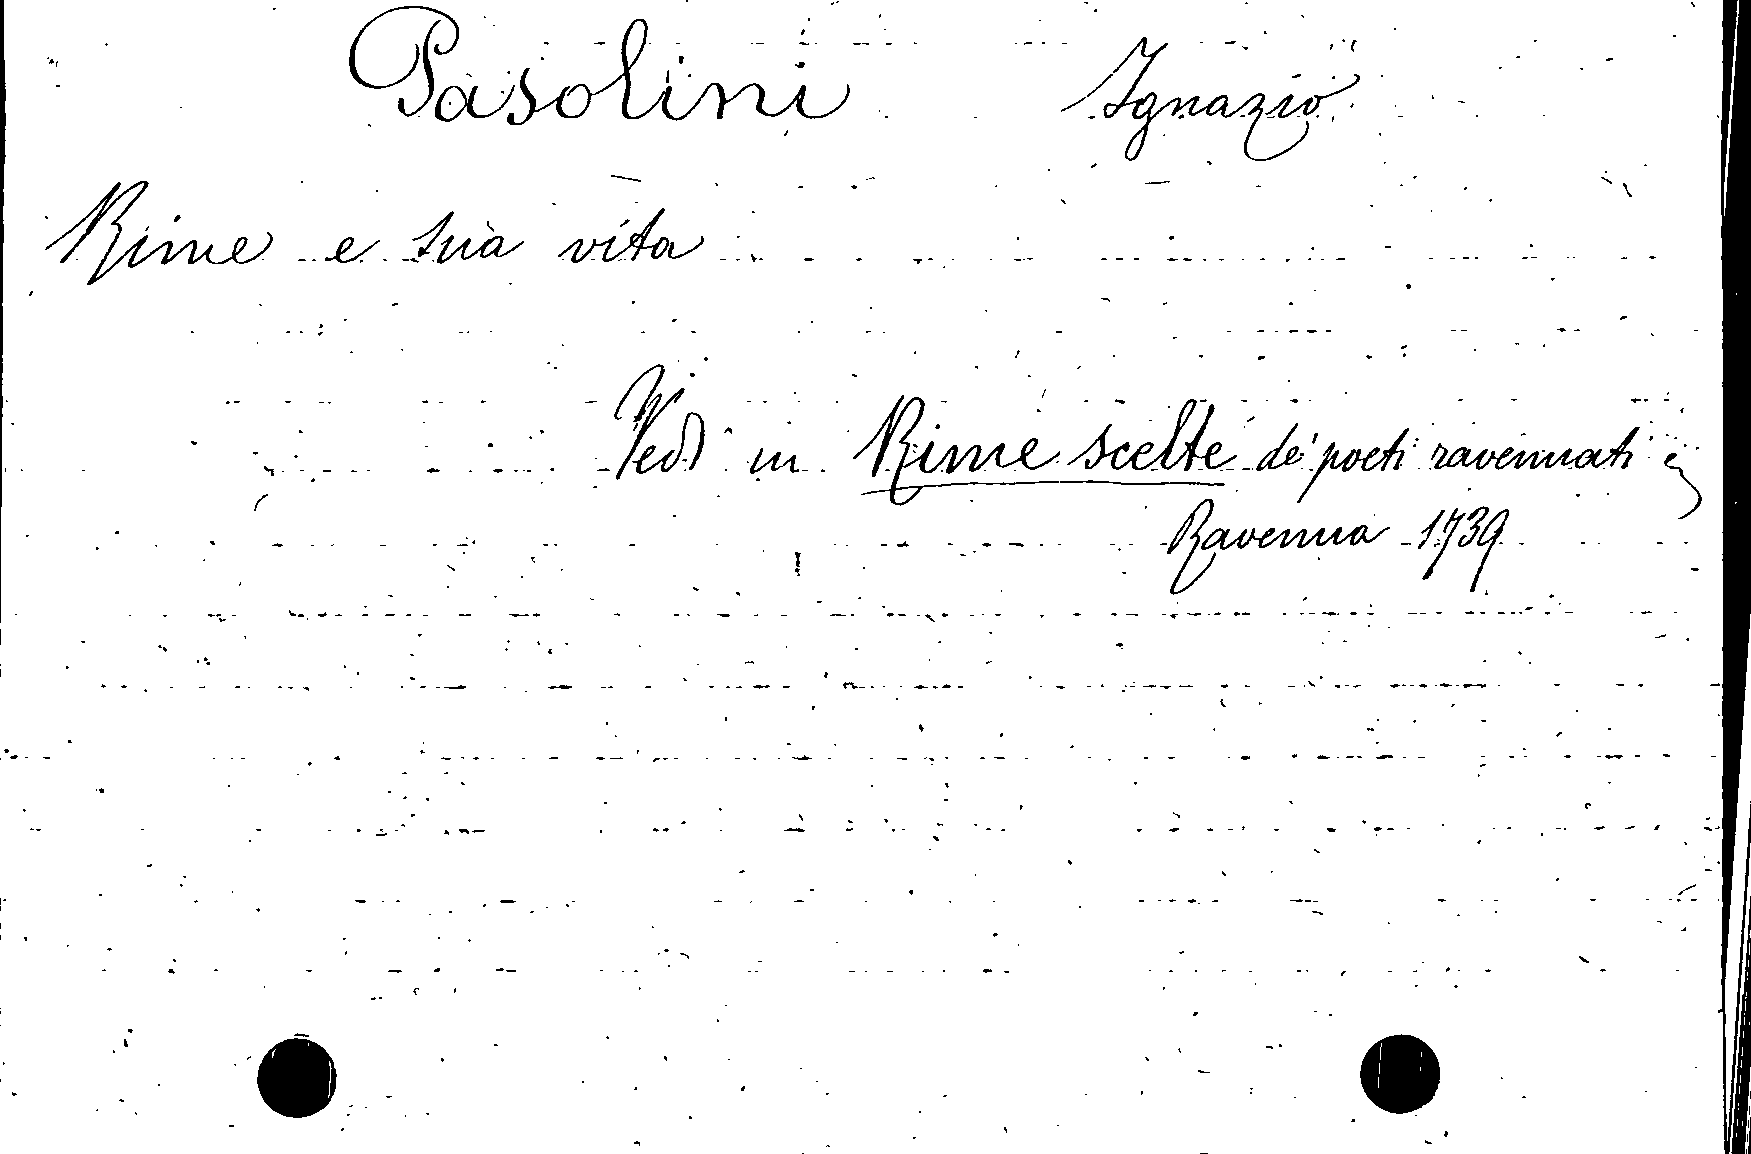 Pasolini Ignazio
Rime e sua vita
Vedi in Rime scelte de' poeti ravennati
Ravenna 1739